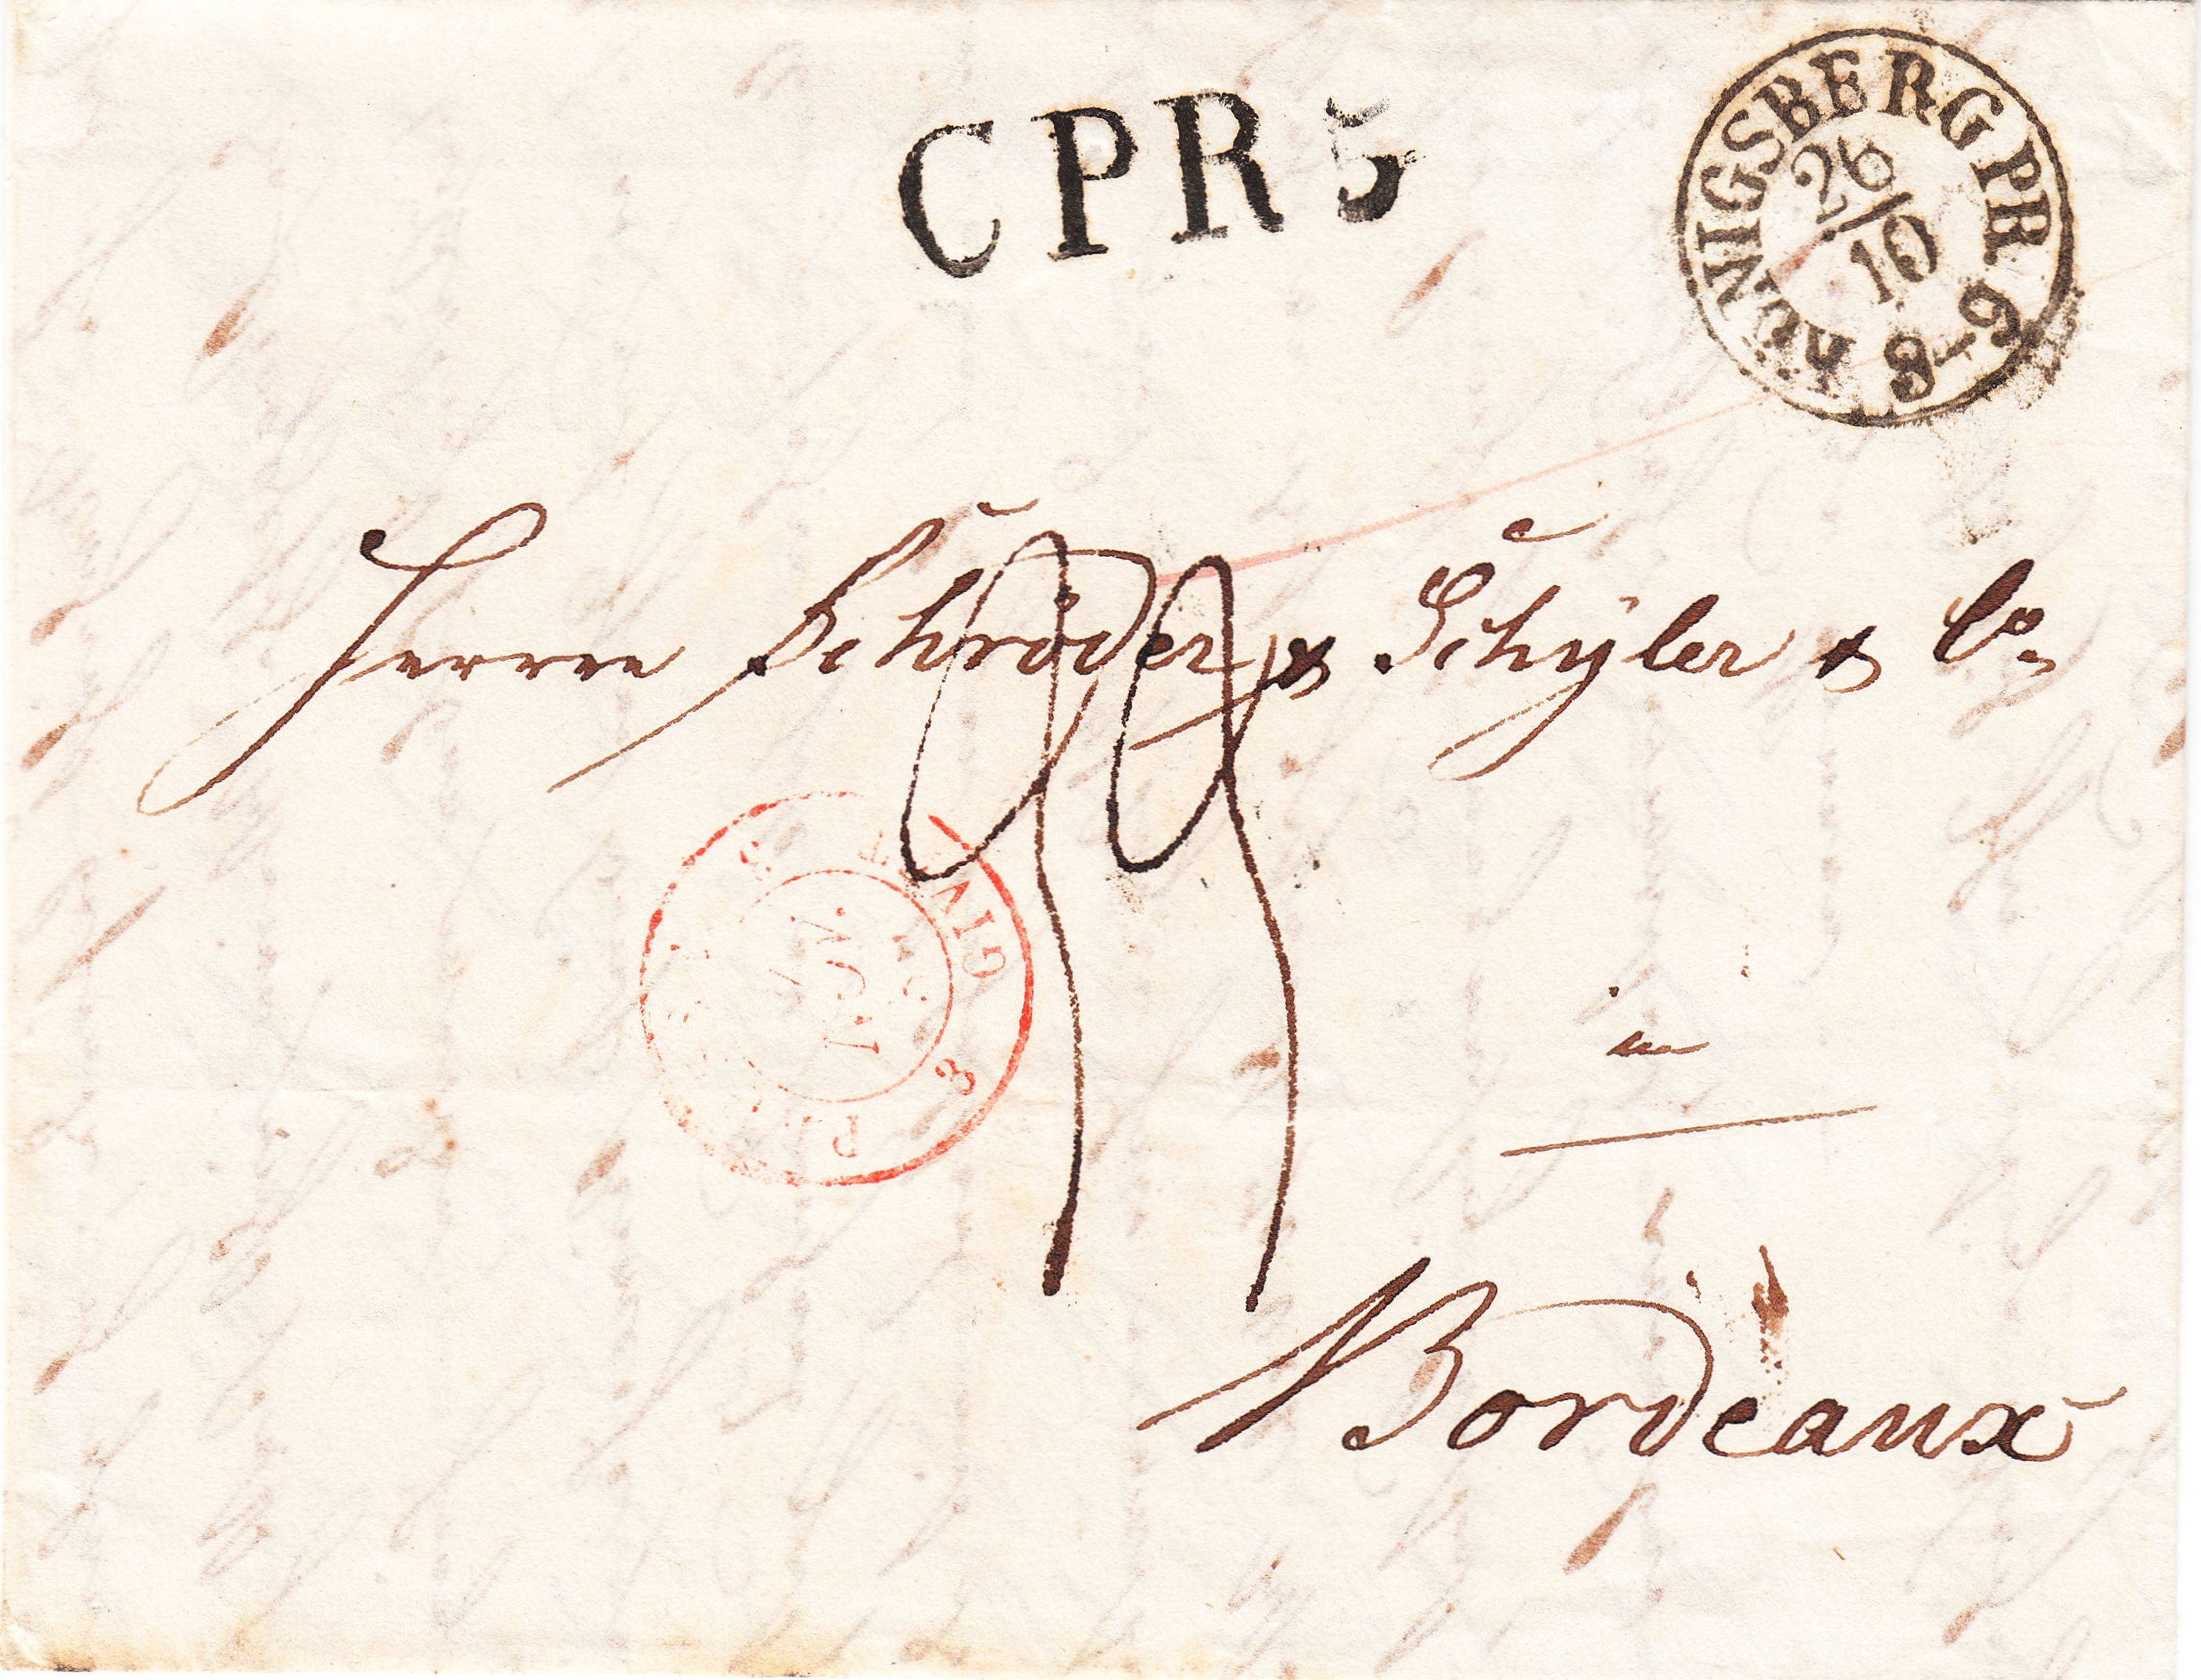 CPR 5
KÖNIGSBERG PR. 8-9
26/10
Herren Schröder & Schÿler & Co.
GIVET 3
NOV.
in
Bordeaux